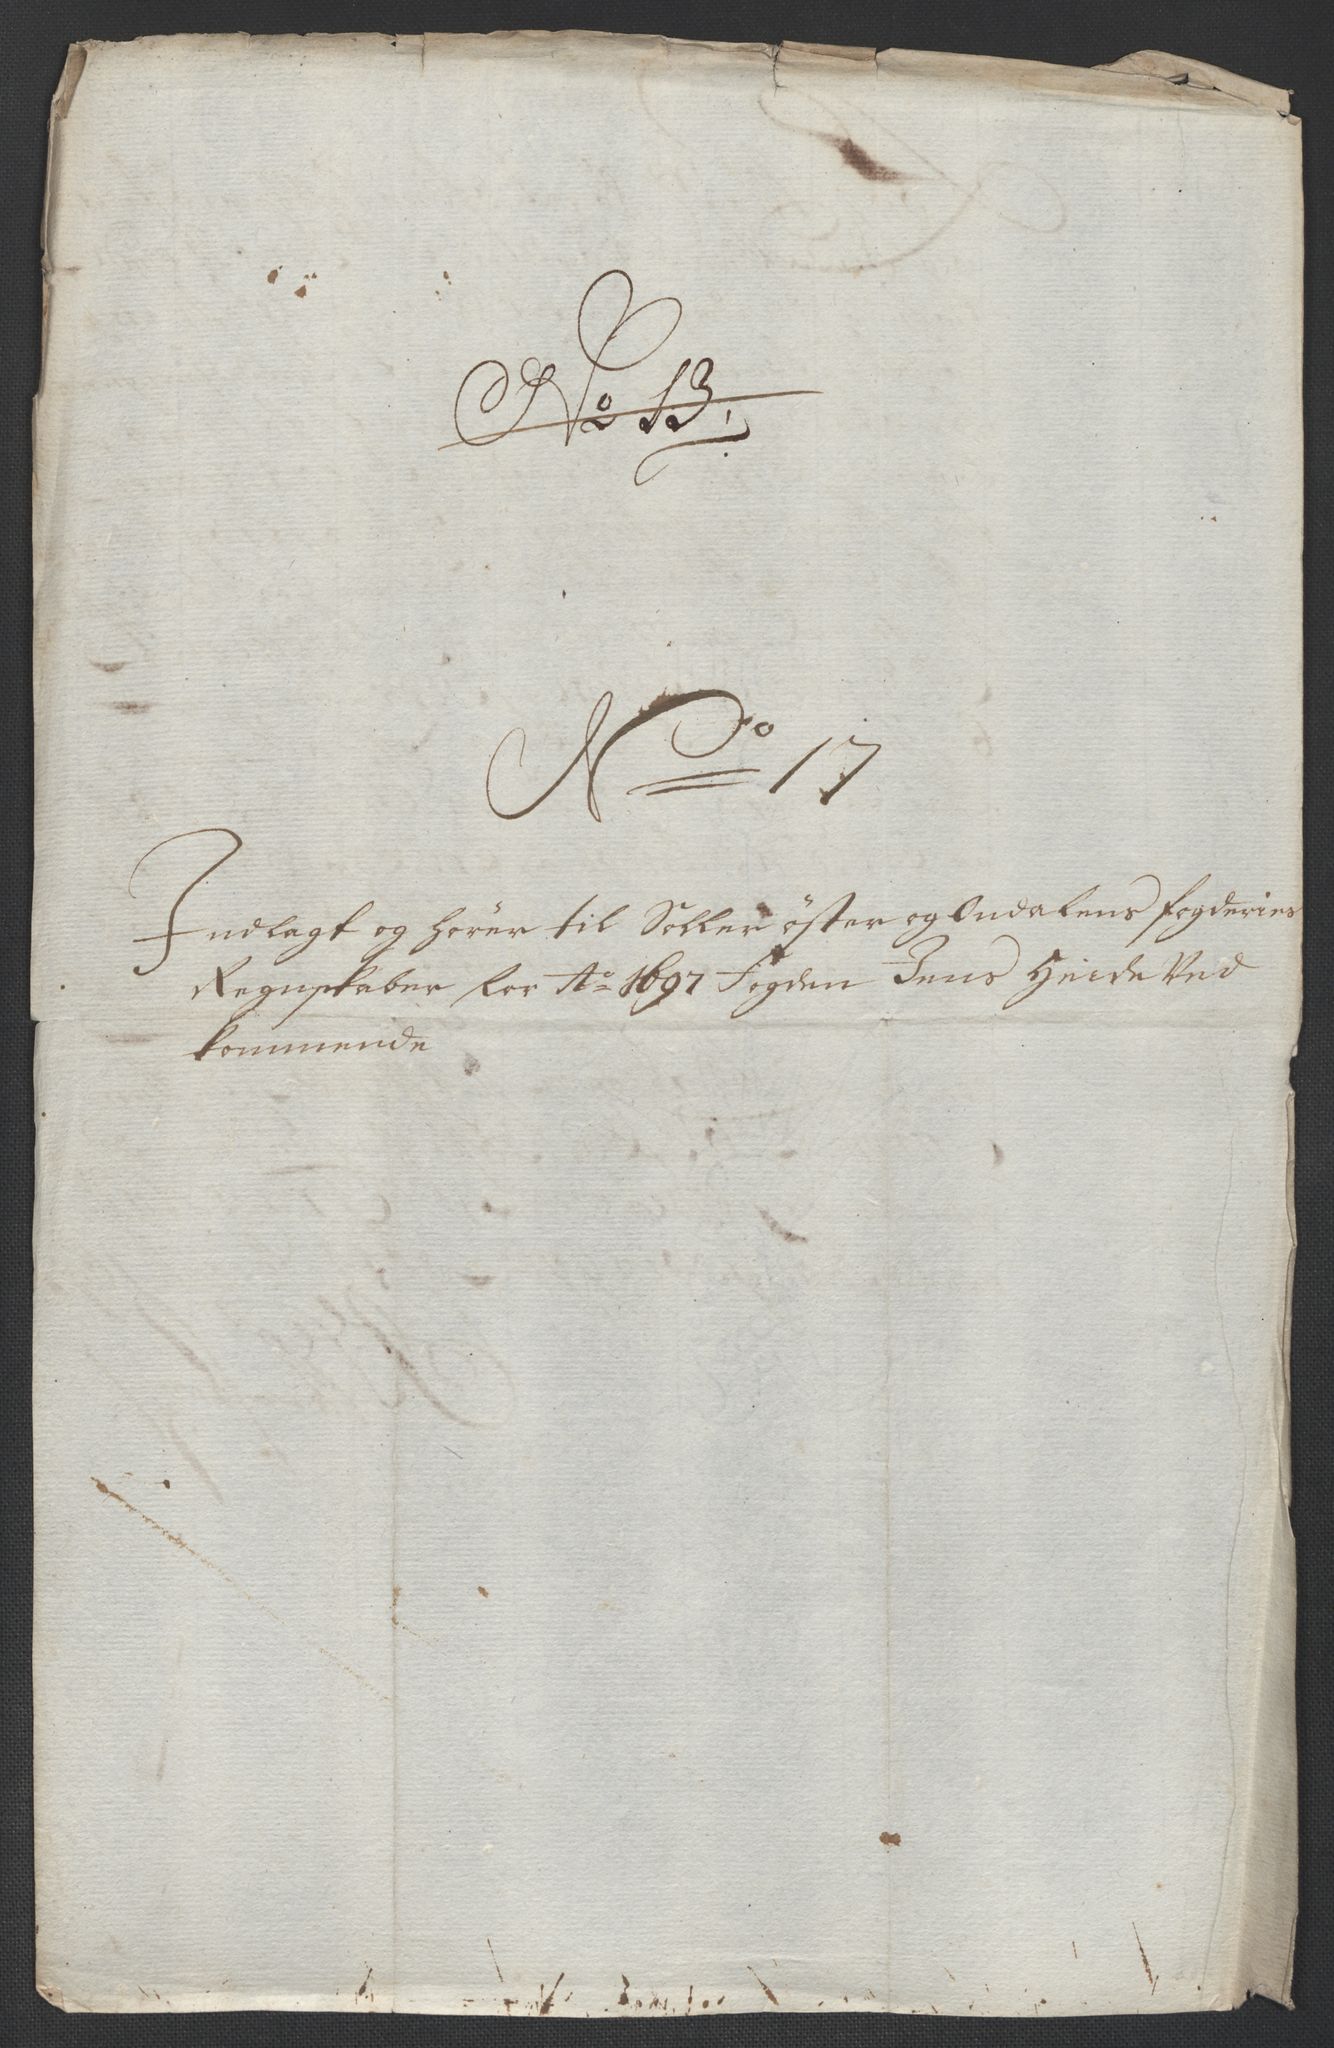 No 13
No 17
Indlagt og hører til Soller öster og Ondalens fogderies
Regnskaber for Ao 1697 Fogden Jens Heide Ved
kommende